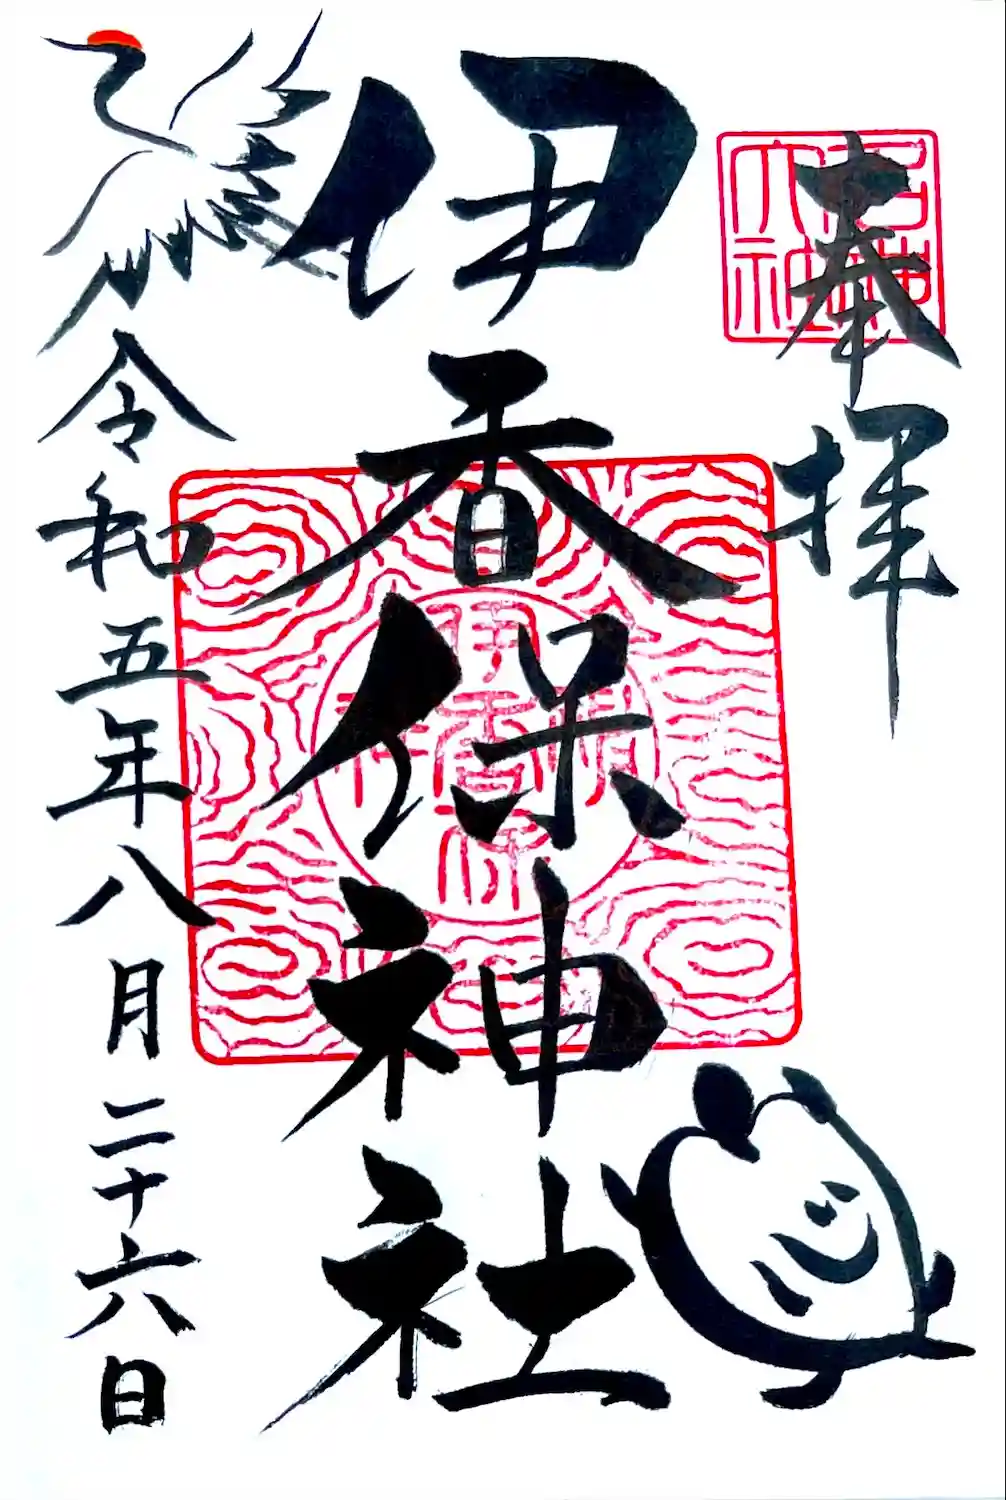 奉拝
伊香保神社
令和五年八月二十六日